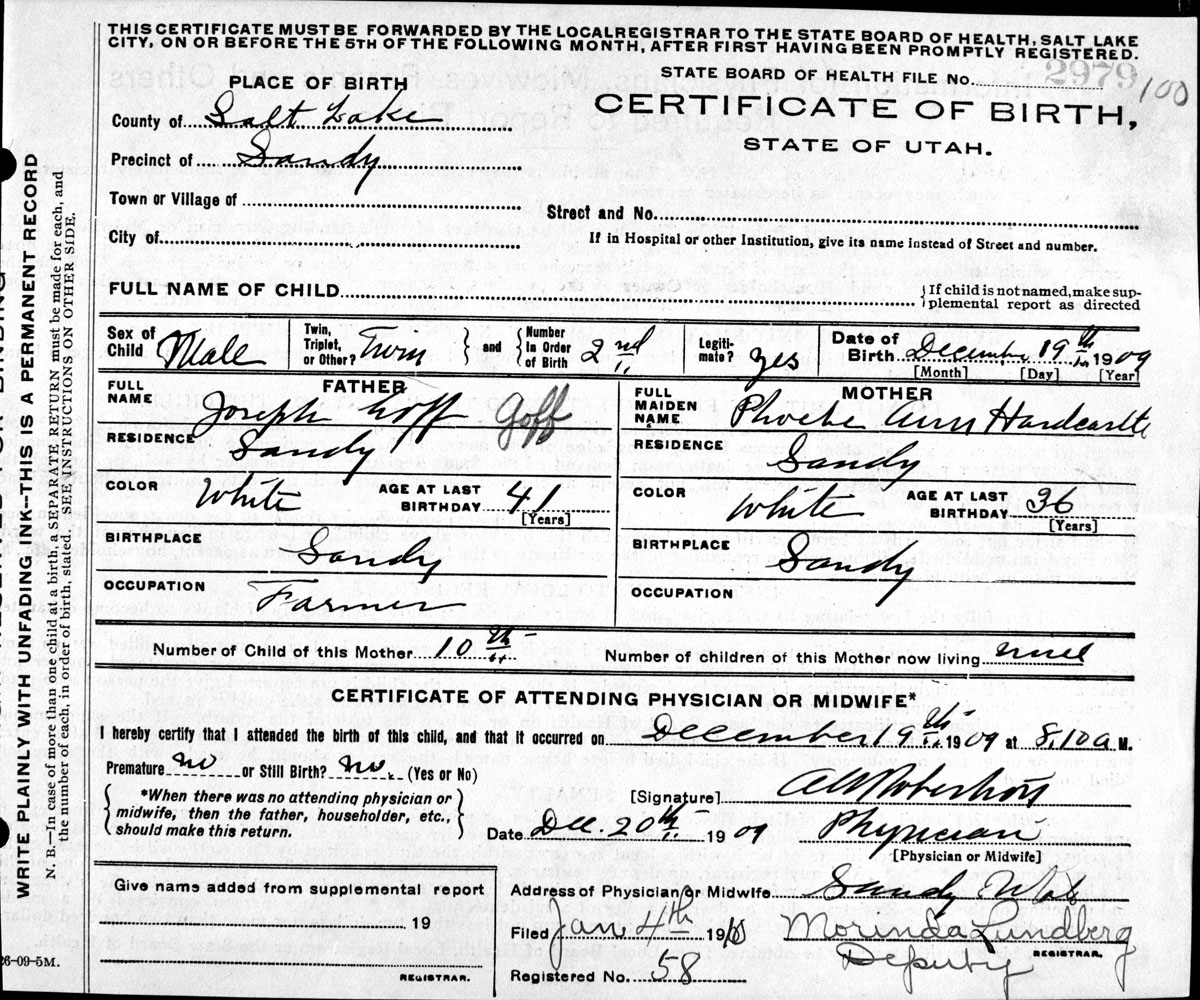 THIS CERTIFICATE MUST BE FORWARDED BY THE LOCALREGISTRAR TO THE STATE BOARD OF HEALTH, SALT LAKE
CITY, ON OR BEFORE THE 5TH OF THE FOLLOWING MONTH, AFTER FIRST HAVING BEEN PROMPTLY REGISTERED.
PLACE OF BIRTH
STATE BOARD OF HEALTH FILE No. 2979 /100
County of Salt Lake
CERTIFICATE OF BIRTH,
STATE OF UTAH.
Precinct of Sandy
Town or Village of
Street and No.
City of
If in Hospital or other Institution, give its name instead of Street and number.
FULL NAME OF CHILD
{ If child is not named, make sup-
plemental report as directed
Sex of Child Male
Twin, Triplet, or Other? Twin } and { Number In Order of Birth 2nd
Legiti-mate? yes
Date of Birth December 19th 1909
[Month] [Day] [Year]
FATHER
FULL NAME Joseph Goff Goff
RESIDENCE Sandy
COLOR White AGE AT LAST BIRTHDAY 41
[Years]
BIRTHPLACE Sandy
OCCUPATION Farmer
MOTHER
FULL MAIDEN NAME Phoebe Ann Hardcastle
RESIDENCE Sandy
COLOR White AGE AT LAST BIRTHDAY 36
[Years]
BIRTHPLACE Sandy
OCCUPATION
Number of Child of this Mother 10th
Number of children of this Mother now living
CERTIFICATE OF ATTENDING PHYSICIAN OR MIDWIFE*
I hereby certify that I attended the birth of this child, and that it occurred on December 19th 1909 at 8,10 a M.
Premature no or Still Birth? no. (Yes or No)
{ *When there was no attending physician or
midwife, then the father, householder, etc.,
should make this return. }
[Signature]
Date Dec. 20th 1909 Physician
[Physician or Midwife]
Give name added from supplemental report
19
REGISTRAR.
Address of Physician or Midwife Sandy Utah
Filed Jan 4th 1910 Morinda Lundberg
Deputy REGISTRAR.
Registered No. 58
WRITE PLAINLY WITH UNFADING INK—THIS IS A PERMANENT RECORD
N. B.—In case of more than one child at a birth, a SEPARATE RETURN must be made for each, and
the number of each, in order of birth, stated. SEE INSTRUCTIONS ON OTHER SIDE.
26-09-5M.